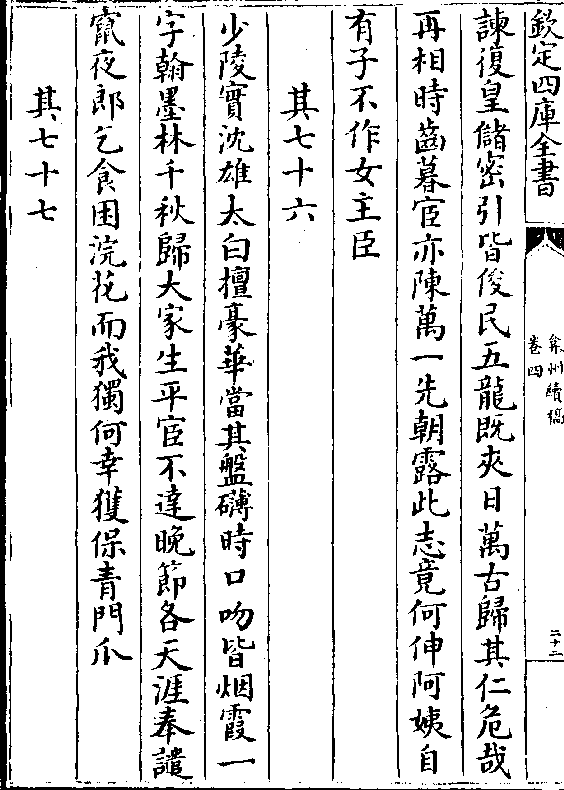 欽定四庫全書
弇州續稿
卷四
二十二
諫復皇儲密引皆俊民五龍既夾日萬古歸其仁危哉
再相時齒暮宦亦陳萬一先朝露此志竟何伸阿姨自
有子不作女主臣
其七十六
少陵實沈雄太白擅豪華當其盤礴時口吻皆烟霞一
字翰墨林千秋歸大家生平宦不達晚節各天涯奉譴
竄夜郎乞食困浣花而我獨何幸獲保青門瓜
其七十七